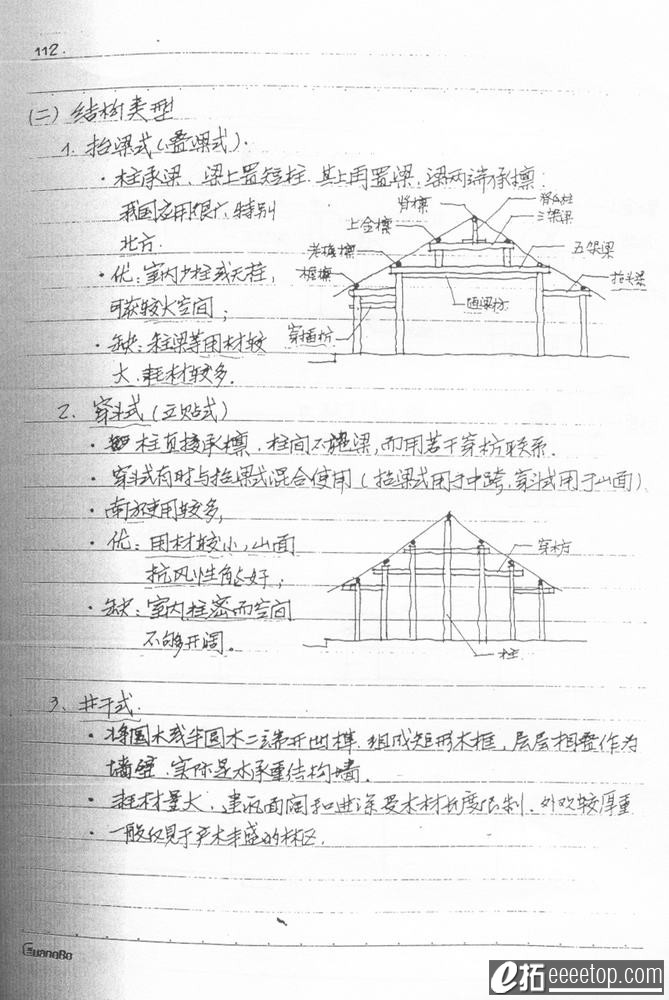 112.
(二) 结构类型
1. 抬梁式(叠梁式).
· 柱承梁、梁上置短柱.其上再置梁,梁两端承檩.
我国应用很广,特别
北方.
脊檩
脊瓜柱
三架梁
上金檩
五架梁
老檐檩
抬头梁
檐檩
随梁枋
穿插枋
· 优:室内少柱或无柱,
可获较大空间;
· 缺:柱梁等用材较
大.耗材较多.
2. 穿斗式(立贴式)
· 柱直接承檩.柱间不施梁,而用若干穿枋联系.
· 穿斗式有时与抬梁式混合使用(抬梁式用于中跨,穿斗式用于山面)
· 南方使用较多,
· 优:用材较小,山面
抗风性能好;
· 缺:室内柱密而空间
不够开阔。
穿枋
柱
3. 井干式.
· 将圆木或半圆木二端开凹榫.组成矩形木框,层层相叠作为
墙壁.实际是木承重结构墙.
· 耗材量大,建筑面阔和进深受木材长度限制.外观较厚重
· 一般仅见于产木丰盛的林区.
GuangBo
e拓 eeeetop.com